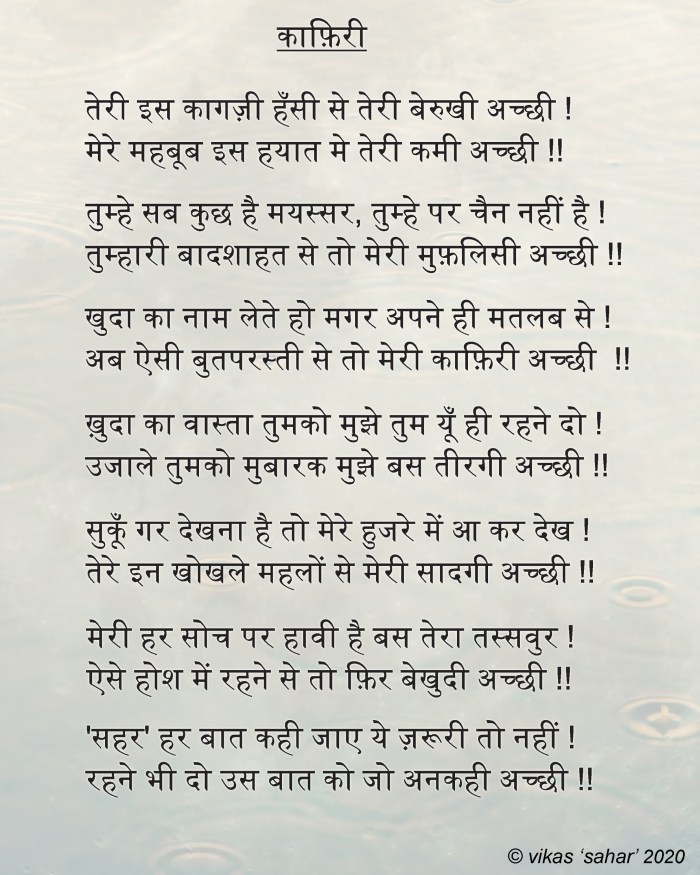 काफ़िरी
तेरी इस कागज़ी हँसी से तेरी बेरुखी अच्छी !
मेरे महबूब इस हयात मे तेरी कमी अच्छी !!
तुम्हे सब कुछ है मयस्सर, तुम्हे पर चैन नहीं है !
तुम्हारी बादशाहत से तो मेरी मुफ़लिसी अच्छी !!
खुदा का नाम लेते हो मगर अपने ही मतलब से !
अब ऐसी बुतपरस्ती से तो मेरी काफ़िरी अच्छी !!
ख़ुदा का वास्ता तुमको मुझे तुम यूँ ही रहने दो !
उजाले तुमको मुबारक मुझे बस तीरगी अच्छी !!
सुकूँ गर देखना है तो मेरे हुजरे में आ कर देख !
तेरे इन खोखले महलों से मेरी सादगी अच्छी !!
मेरी हर सोच पर हावी है बस तेरा तस्सवुर !
ऐसे होश में रहने से तो फ़िर बेखुदी अच्छी !!
'सहर' हर बात कही जाए ये ज़रूरी तो नहीं !
रहने भी दो उस बात को जो अनकही अच्छी !!
© vikas ‘sahar’ 2020